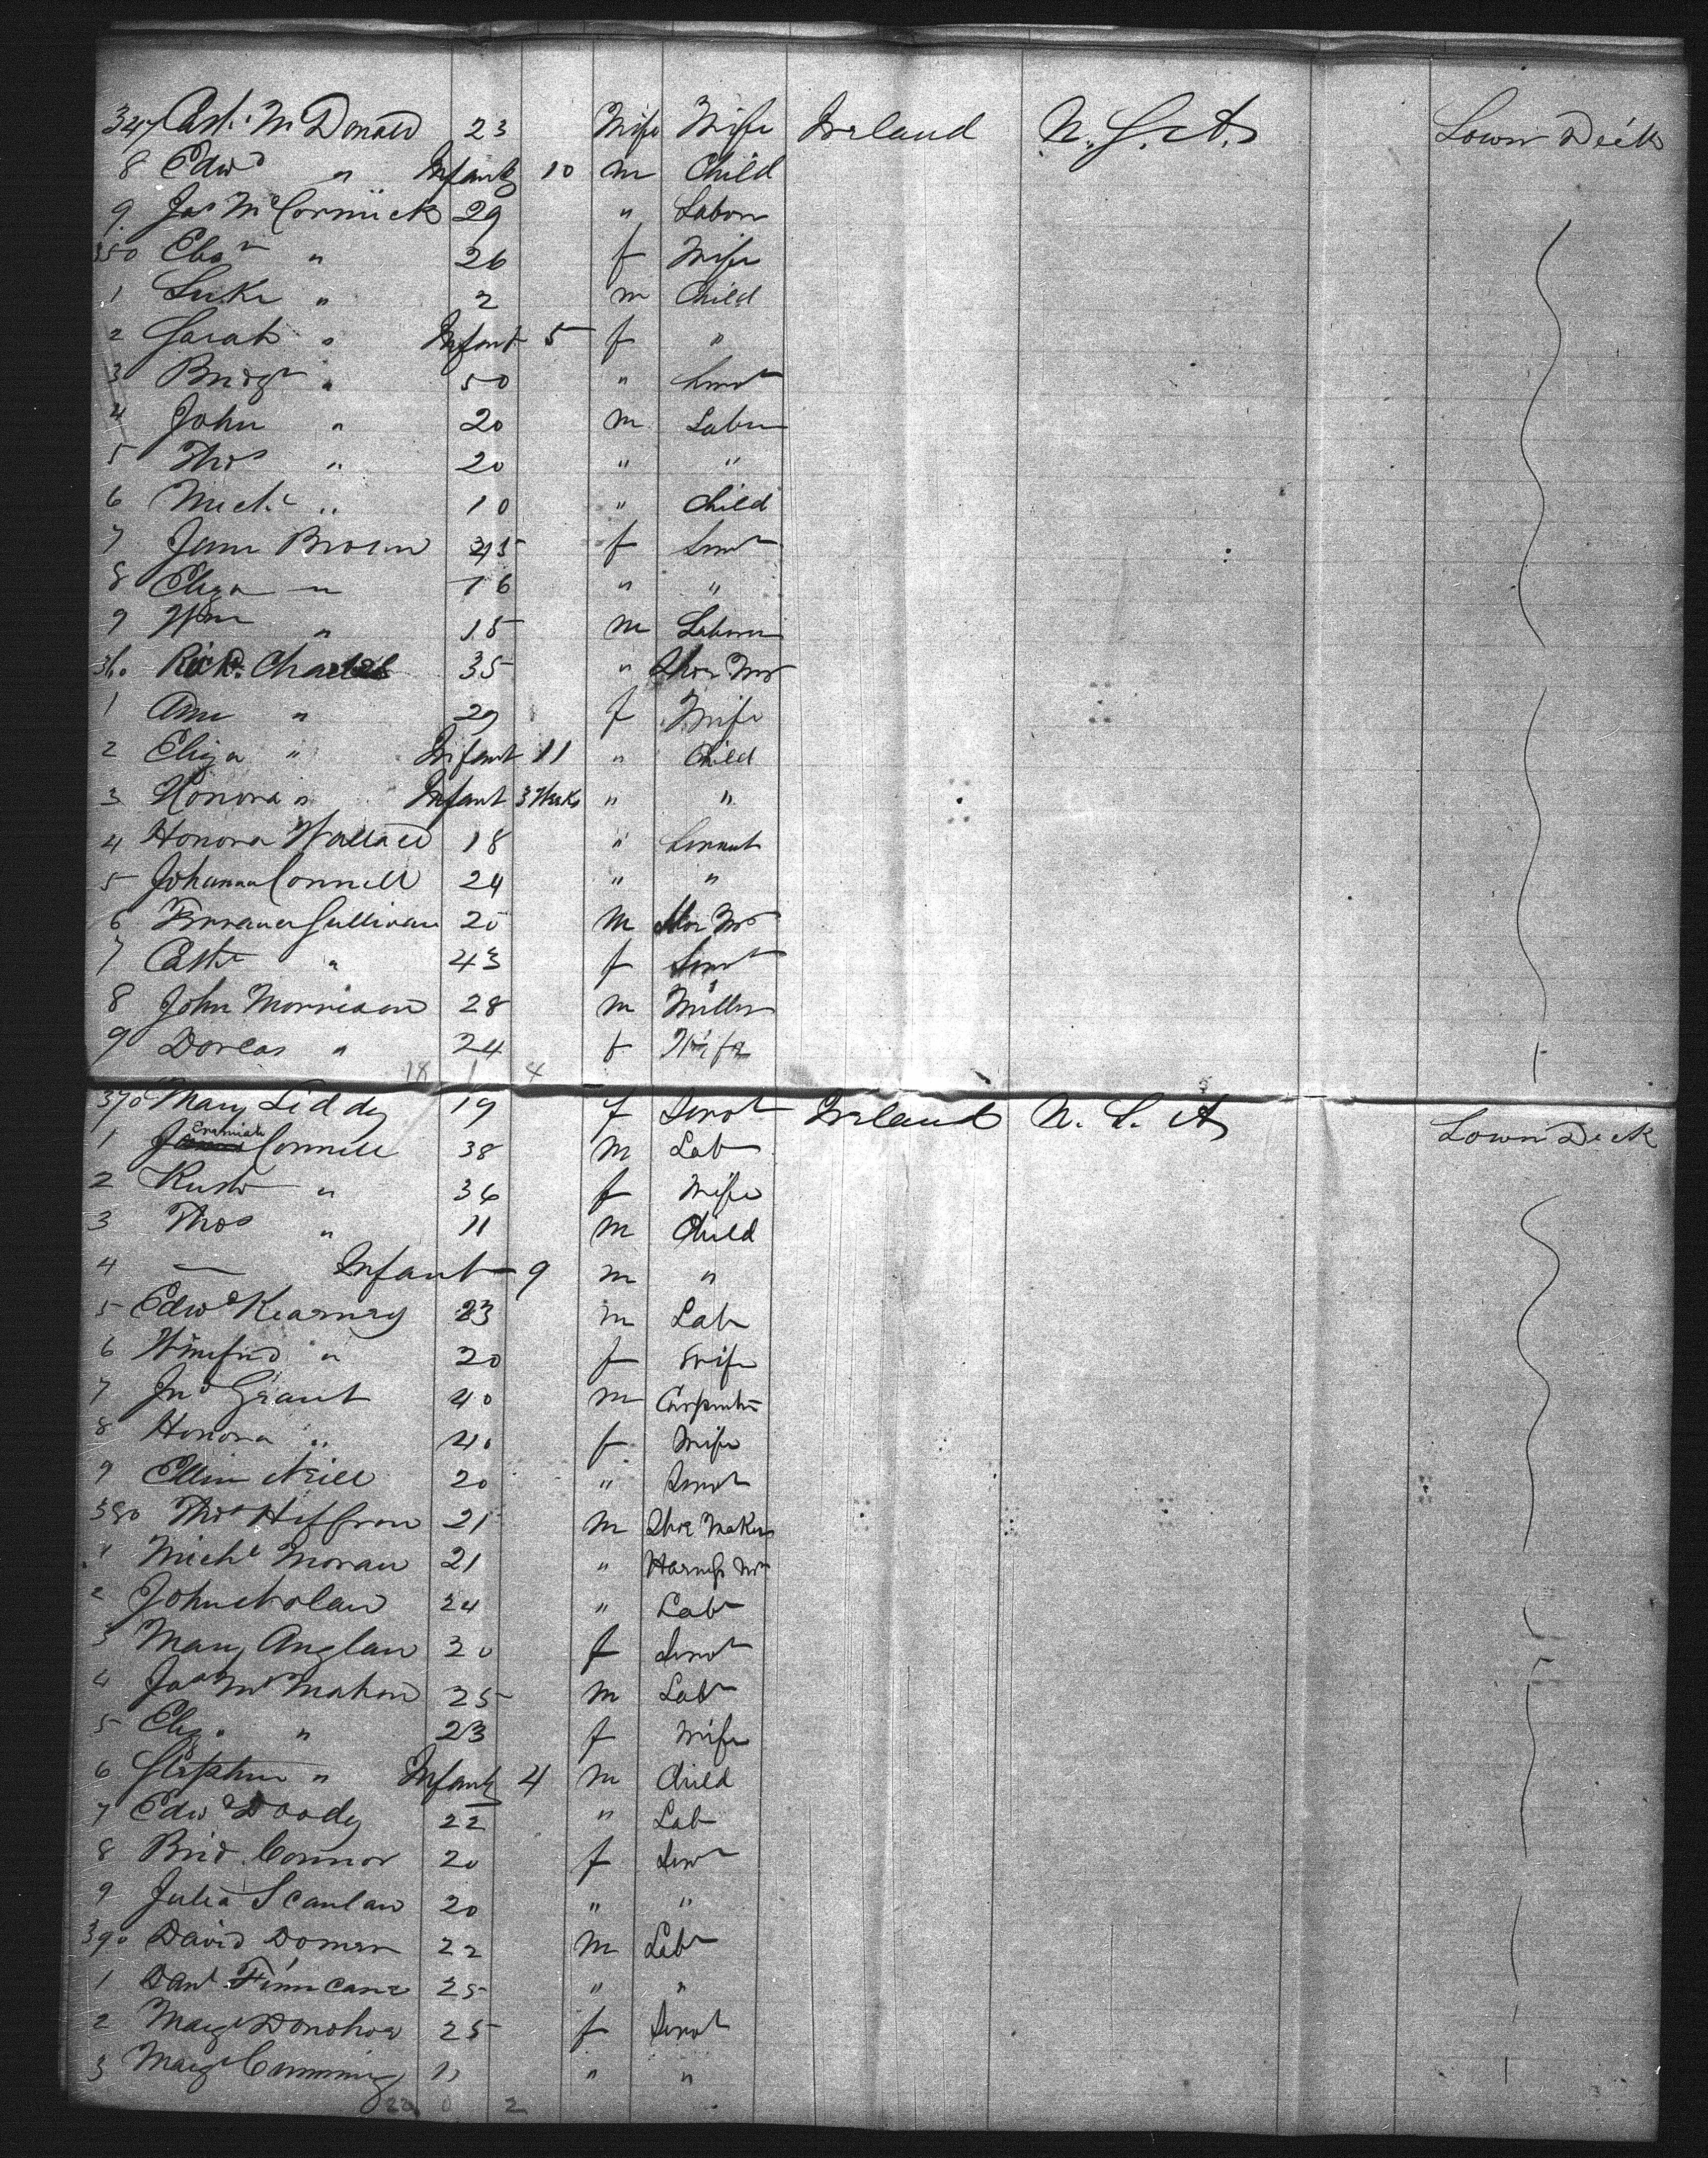 347 Cath. McDonald 23 Wife Wife Ireland U.S.A. Lower Deck
8 Edwd " Infant 10 m Child
9 Jas McCormick 29 " Labor
350 Elizth " 26 f Wife
1 Luke " 2 m Child
2 Sarah " Infant 5 f "
3 Bridgt " 50 " Servt
4 John " 20 m Labr
5 Thos " 20 " "
6 Michl " 10 " Child
7 Jane Brown 45 f Servt
8 Eliza " 16 " "
9 Wm " 15 m Laborer
360 Richd. Charles 35 " Shoe Mr
1 Ann " 29 f Wife
2 Eliza " Infant 11 " Child
3 Honora " Infant 3 Weeks " "
4 Honora Wallace 18 " Servant
5 Johanna Connell 24 " "
6 Sullivan 20 m Shoe Mr
7 Cathe " 43 f Servt
8 John Morrison 28 m Miller
9 Dorcas " 24 f Wife
18 1 4
370 Mary Liddy 19 f Servt Ireland U.S.A. Lower Deck
1 Jeremiah Connell 38 m Lab
2 " 36 f Wife
3 Thos " 11 m Child
4 — Infant 9 m "
5 Edwd Kearney 23 m Lab
6 Winefrid " 20 f Wife
7 Jno Grant 40 m Carpenter
8 Honora " 40 f Wife
9 Ellin Neill 20 " Servt
380 Thos Heffron 21 m Shoe Maker
1 Michl Moran 21 " Harness Mr
2 John Nolan 24 " Labr
3 Mary Anglan 30 f Servt
4 Jas McMahon 25 m Labr
5 Eliz. " 23 f Wife
6 Stephen " Infant 4 m Child
7 Edwd Doody 22 " Lab
8 Brid. Connor 20 f Servt
9 Julia Scanlan 20 " "
390 David Doman 22 m Labr
1 Danl. Finncane 25 " "
2 Margt Donohoe 25 f Servt
3 Margt Cumming 11 " "
22 0 2